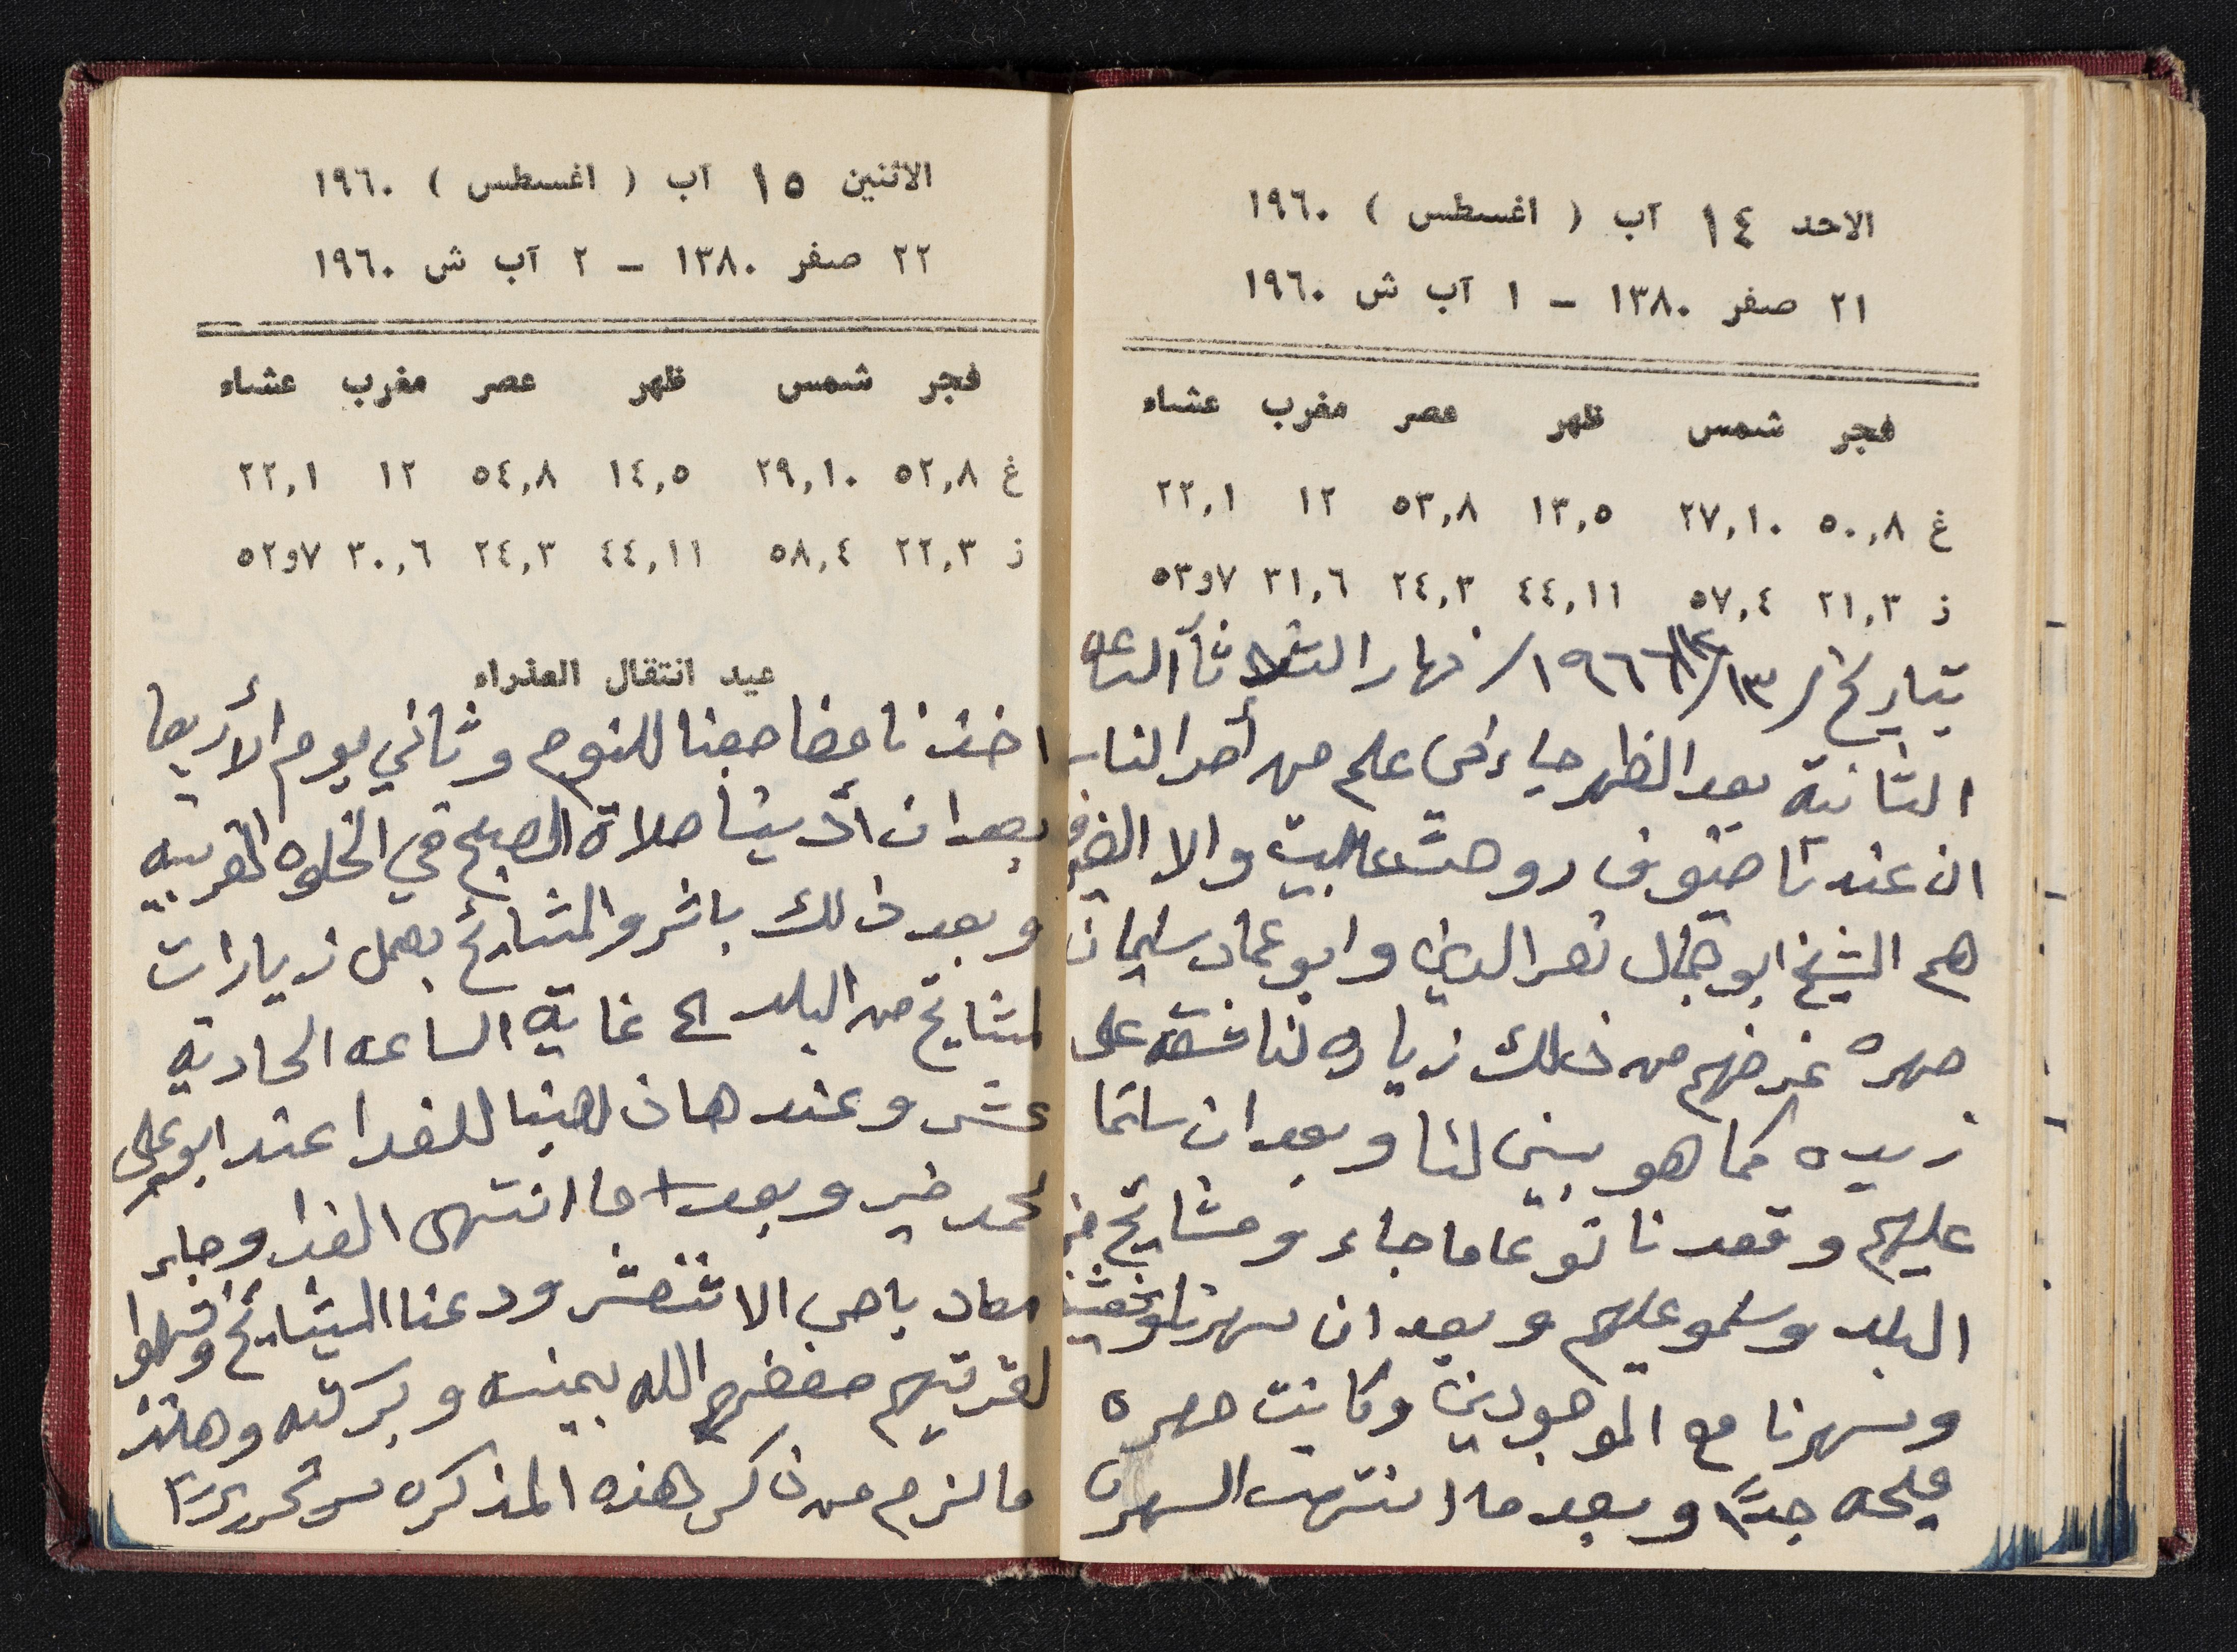 الاحد ١٤ آب ( اغسطس ) ١٩٦٠
٢١ صفر ١٣٨٠ – ١ آب ش ١٩٦٠
فجر شمس ظهر عصر مغرب عشاء
غ ٥٠,٨ ٢٧,١٠ ١٣,٥ ٥٣,٨ ١٢ ٢٢,١
ز ٢١,٣ ٥٧,٤ ٤٤,١١ ٢٤,٣ ٣١,٦ ٧و٥٣
بتاريخ / ١٣ / ١٩٦٦ / نهار الثلاثآ الساعه
الثانية بعد الظهر جاءني علم من أحد الناس
ان عندنا ضيوف روحت عالبيت والا الضيوف
هم الشيخ ابو جمال نصر الدين وابو عماد سليمان
مهره غرضهم من ذلك زياره لنا
زيده كما هو بيني لنا وبعد ان سلمنا
عليهم وقعدنا نوعاما جاء ومشايخ من
البلد وسلمو عليهم وبعد ان سهرنا
وسهرنا مع الموجودين وكانت سهره
مليحه جدًّا وبعد ما انتهت السهره
الاثنين ١٥ آب ( اغسطس ) ١٩٦٠
٢٢ صفر ١٣٨٠ – ٢ آب ش ١٩٦٠
فجر شمس ظهر عصر مغرب عشاء
غ ٥٢,٨ ٢٩,١٠ ١٤,٥ ٥٤,٨ ١٢ ٢٢,١
ز ٢٢,٣ ٥٨,٤ ٤٤,١١ ٢٤,٣ ٣٠,٦ ٧و٥٢
عيد انتقال العذراء
اخذنا مضاجعنا للنوم وثاني يوم الأربعا
بعد ان أدينا صلاة الصبح في الخلوه الغربيه
وبعد ذلك باشرو المشايخ بعمل زيارات
لمشايخ من البلد الى غاية الساعه الحادية
عشر وعندها ذهبنا للغدا عند ابو علي
محمد خير وبعد ما انتهى الغدا وجاء
معاد باص الاثنعشر ودعنا المشايخ
لقريتهم حفضهم الله بمنه وبركته وهذا
ما لزم من ذكر هذه المذكره